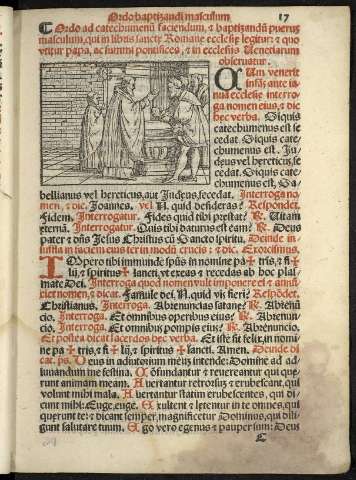 Ordo baptizandi masculum 17
Ordo ad catechumenũ faciendum, & baptizandũ puerum
masculum, qui in libris sanctę Romane ecclesię legitur & quo
vtitur papa, ac summi pontifices, & in ecclesiis Venetiarum
obseruatur.
QUm venerit
infãs ante ia
nuã ecclesię interro
ga nomen eius, & dic
hec verba. Siquis
catechumenus est se
cedat. Siquis catę
chumenus est. Ju
dęus vel hereticus, se
cedat. Siquis catę
chumenus est, Sa
bellianus vel hereticus, aut Judęus, secedat. Interroga no
men, & dic. Joannes. vel N. quid desideras? Respondet.
Fidem. Interrogatur. Fides quid tibi prestat? R. Uitam
eternã. Interrogatur. Quis tibi daturus est eam? R. Deus
pater & dñs Jesus Christus cũ Sancto spiritu. Deinde in
suffla in faciem eius ter in modũ crucis: & dic. Exorcismus.
Topero tibi immunde spũs in nomine pa✠tris, & fi✠
lii, & spiritus✠sancti, vt exeas & recedas ab hoc plas
mate Dei. Interroga quod nomen vult imponere ei & annũ
ciet nomen, & dicat. Famule dei. N. quid vis fieri? Respõdet.
Christianus. Interroga. Abrenuncias satane? R. Abrenũ
cio. Interroga. Et omnibus operibus eius? R. Abrenun
cio. Interroga. Et omnibus pompis eius? R. Abrenuncio.
Et postea dicat sacerdos hęc verba. Et iste sit felix, in nomi
ne pa✠tris, & fi✠lii, & spiritus✠sancti. Amen. Deinde di
cat. ps. Deus in adiutorium meũ intende: Domine ad ad
iuuandum me festina. Cõfundantur & reuereantur qui quę
runt animam meam. Auertantur retrorsũ, & erubescant, qui
volunt mihi mala. Auertantur statim erubescentes, qui di
cunt mihi: Euge, euge. Exultent & lętentur in te omnes, qui
querunt te: & dicant semper, magnificetur Dominus, qui dili
gunt salutare tuum. Ego vero egenus & pauper sum: Deus
C